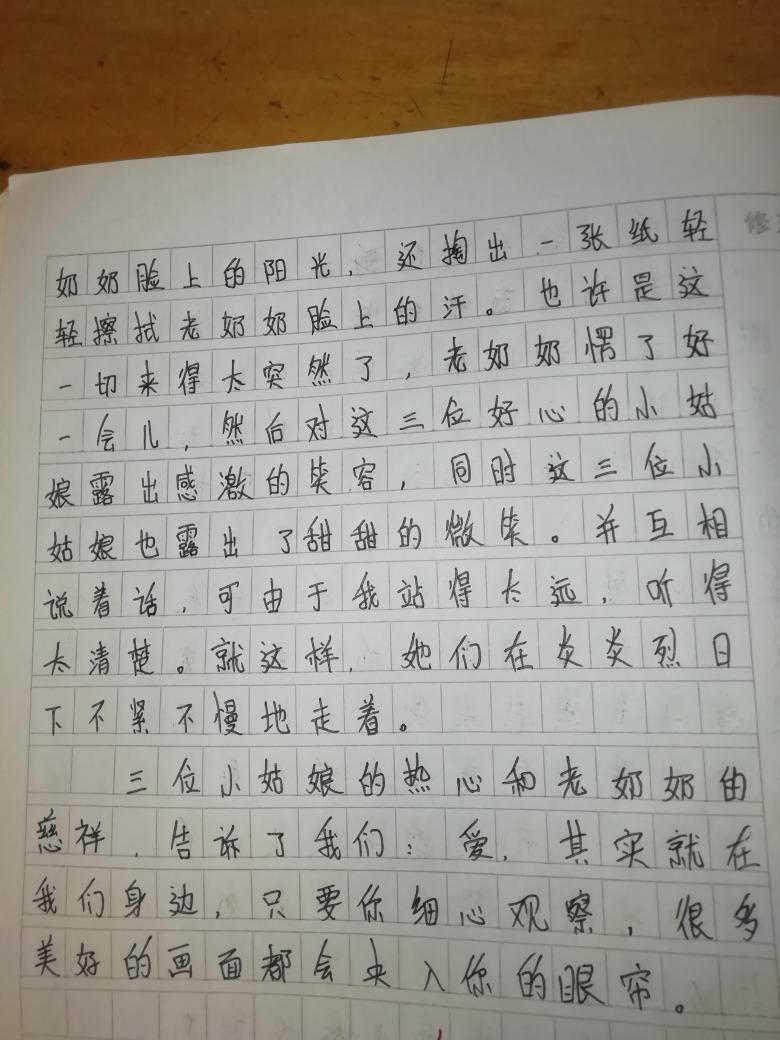 修
奶奶脸上的阳光，还掏出一张纸轻
轻擦拭老奶奶脸上的汗。也许是这
一切来得太突然了，老奶奶愣了好
一会儿，然后对这三位好心的小姑
娘露出感激的笑容，同时这三位小
姑娘也露出了甜甜的微笑。并互相
说着话，可由于我站得太远，听得
太清楚。就这样，她们在炎炎烈日
下不紧不慢地走着。
三位小姑娘的热心和老奶奶的
慈祥，告诉了我们：爱，其实就在
我们身边，只要你细心观察，很多
美好的画面都会央入你的眼帘。